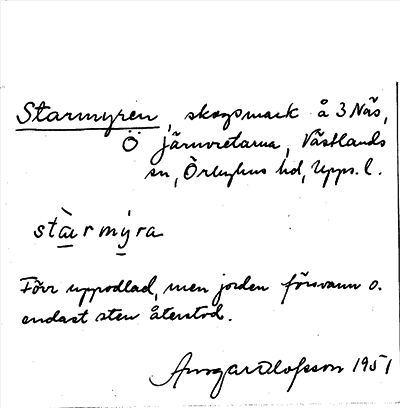 Starmyren, skogsmark å 3 Näs,
Ö Järnvretarna, Västlands
sn, Örbyhus hd, Upps. l.
stàrmýra
Förr uppodlad, men jorden försvann o.
endast sten återstod.
Ansgar Olofsson 1951